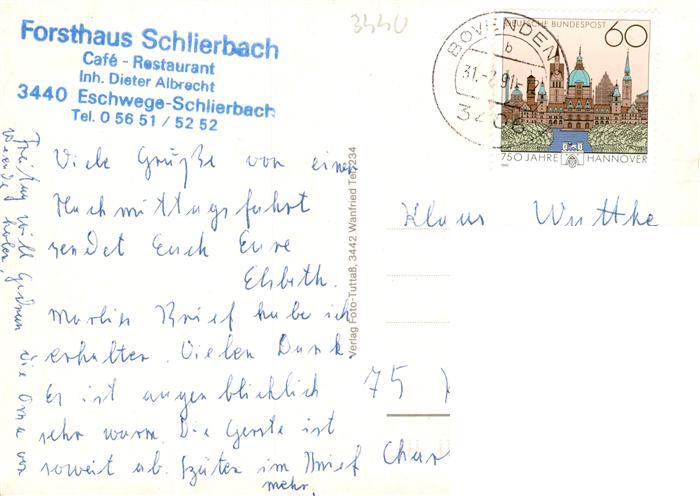 Forsthaus Schlierbach
Café - Restaurant
Inh. Dieter Albrecht
3440 Eschwege-Schlierbach
Tel. 0 56 51 / 52 52
3440
BOVENDEN
b
31.-7.91
3406
DEUTSCHE BUNDESPOST
60
750 JAHRE HANNOVER
Viele Grüße von einer
Nachmittagsfahrt
sendet Euch Eure
Elsbeth.
Marlies Brief habe ich
erhalten. Vielen Dank.
Er ist augenblicklich
sehr warm. Die Gerste ist
soweit ab. Später im Brief
mehr.
Freitag will die Oma
holen.
Verlag Foto-Tuttaß, 3442 Wanfried Tel. 234
Klaus Wuttke
75